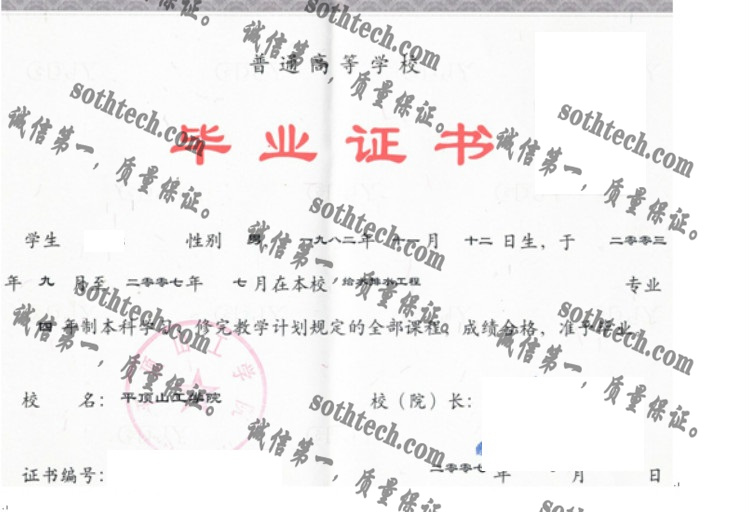 普通高等学校
毕业证书
学生 性别 男，一九八二年 十一月 十二日生，于 二零零三
年 九 月至 二零零七年 七月在本校 给水排水工程 专业
四年制本科学习，修完教学计划规定的全部课程，成绩合格，准予毕业。
校 名：平顶山工学院 校（院）长：
证书编号： 二零零七 年 月 日
sothtech.com
诚信第一，质量保证。
sothtech.com
诚信第一，质量保证。
sothtech.com
诚信第一，质量保证。
sothtech.com
诚信第一，质量保证。
sothtech.com
诚信第一，质量保证。
sothtech.com
诚信第一，质量保证。
sothtech.com
诚信第一，质量保证。